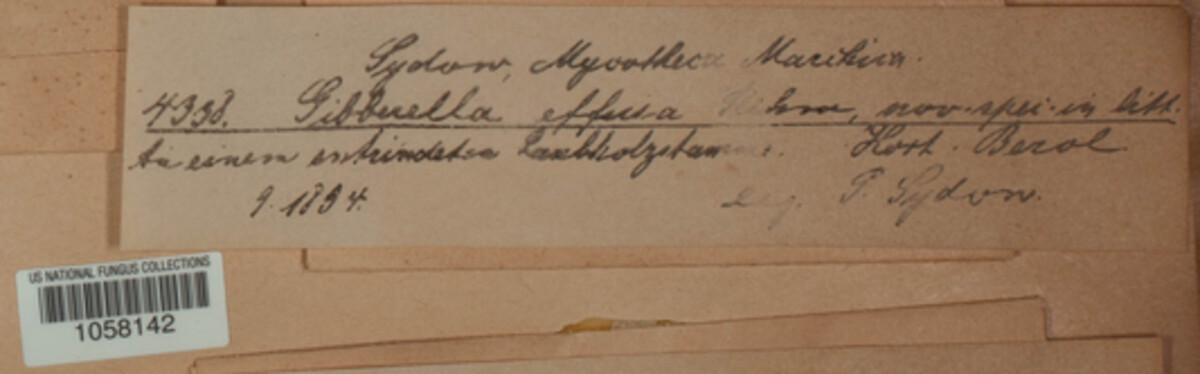 Sydow, Mycotheca Marchica.
4338. Gibberella effusa Rehm, nov. spec. in litt.
An einem entrindeten Laubholzstamme. Hort. Berol.
9. 1894.
Leg. P. Sydow.
US NATIONAL FUNGUS COLLECTIONS
1058142